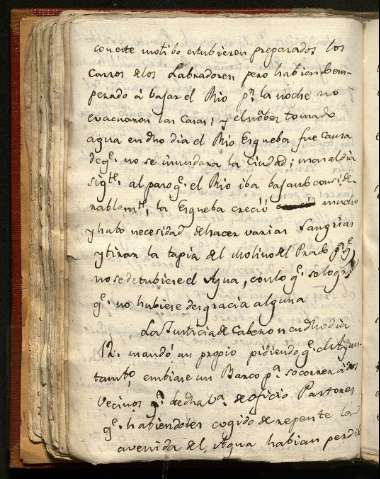 con este motibo estubieron preparados los
carros de los Labradores pero habiendo em-
pezado á bajar el Rio pr. la noche no
evacuaron las Casas; y el no haber tomado
agua en dho dia el Rio Esqueba fue causa
de qe. no se inundara la Ciudad; mas al dia
sigte. al paso qe. el Rio iba bajando conside-
rablemte., la Esqueba creció mucho
y hubo necesidad de hacer varias Sangrias
y tirar la tapia del molino del Prado pr. qe.
no se detubiere el Agua, con lo qe. se logró
qe. no hubiese desgracia alguna
La Justicia de Cabezon en dho dia
12. mandó un propio pidiendo qe. el Ayun-
tamto. embiare un Barco pa. socorrer á dos
Vecinos de dha Va. de oficio Pastores
qe. habiendoles cogido de repente la
avenida del Agua habian perdi